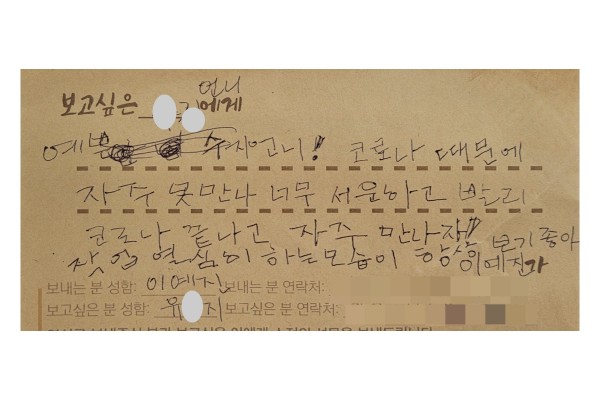 언니
보고싶은 에게
예쁜 수지언니! 코로나 때문에
자주 못만나 너무 서운하고 빨리
코로나 끝나고 자주 만나자!!
작업 열심이 하는모습이 항상 보기 좋아
이예진가
보내는 분 성함: 이예진 보내는 분 연락처:
보고싶은 분 성함: 유 지 보고싶은 분 연락처: